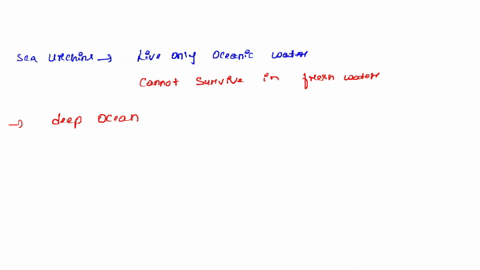 Sea Urchins → Live only oceanic water
Cannot Survive in fresh water
→ deep ocean